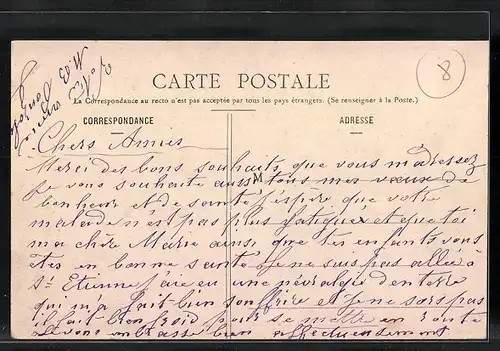 8
CARTE POSTALE
La Correspondance au recto n'est pas acceptée par tous les pays étrangers. (Se renseigner à la Poste.)
CORRESPONDANCE
ADRESSE
M
Chers Amies
Merci des bons souhaits que vous m'adressez
je vous souhaite aussi tous mes vœux de
bonheur et de santé j'espère que votre
malade n'est pas plus fatigué et que toi
ma chère Marie ainsi que tes enfants vous
êtes en bonne santé je ne suis pas allée à
St Etienne j'ai eu une névralgie dentaire
qui m'a fait bien souffrire et je ne sors pas
il fait bien froid pour se mettre en route
vous embrasse bien affectueusement